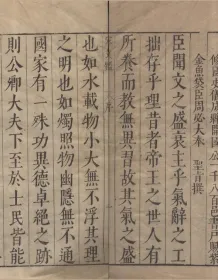 金魚袋臣周必大奉 聖旨撰
臣聞文之盛衰主乎氣辭之工
拙存乎理昔者帝王之世人有
所養而教無異習故其氣之盛
也如水載物小大無不浮其理
之明也如燭照物幽隱無不通
國家有一殊功異德卓絕之跡
則公卿大夫下至於士民皆能